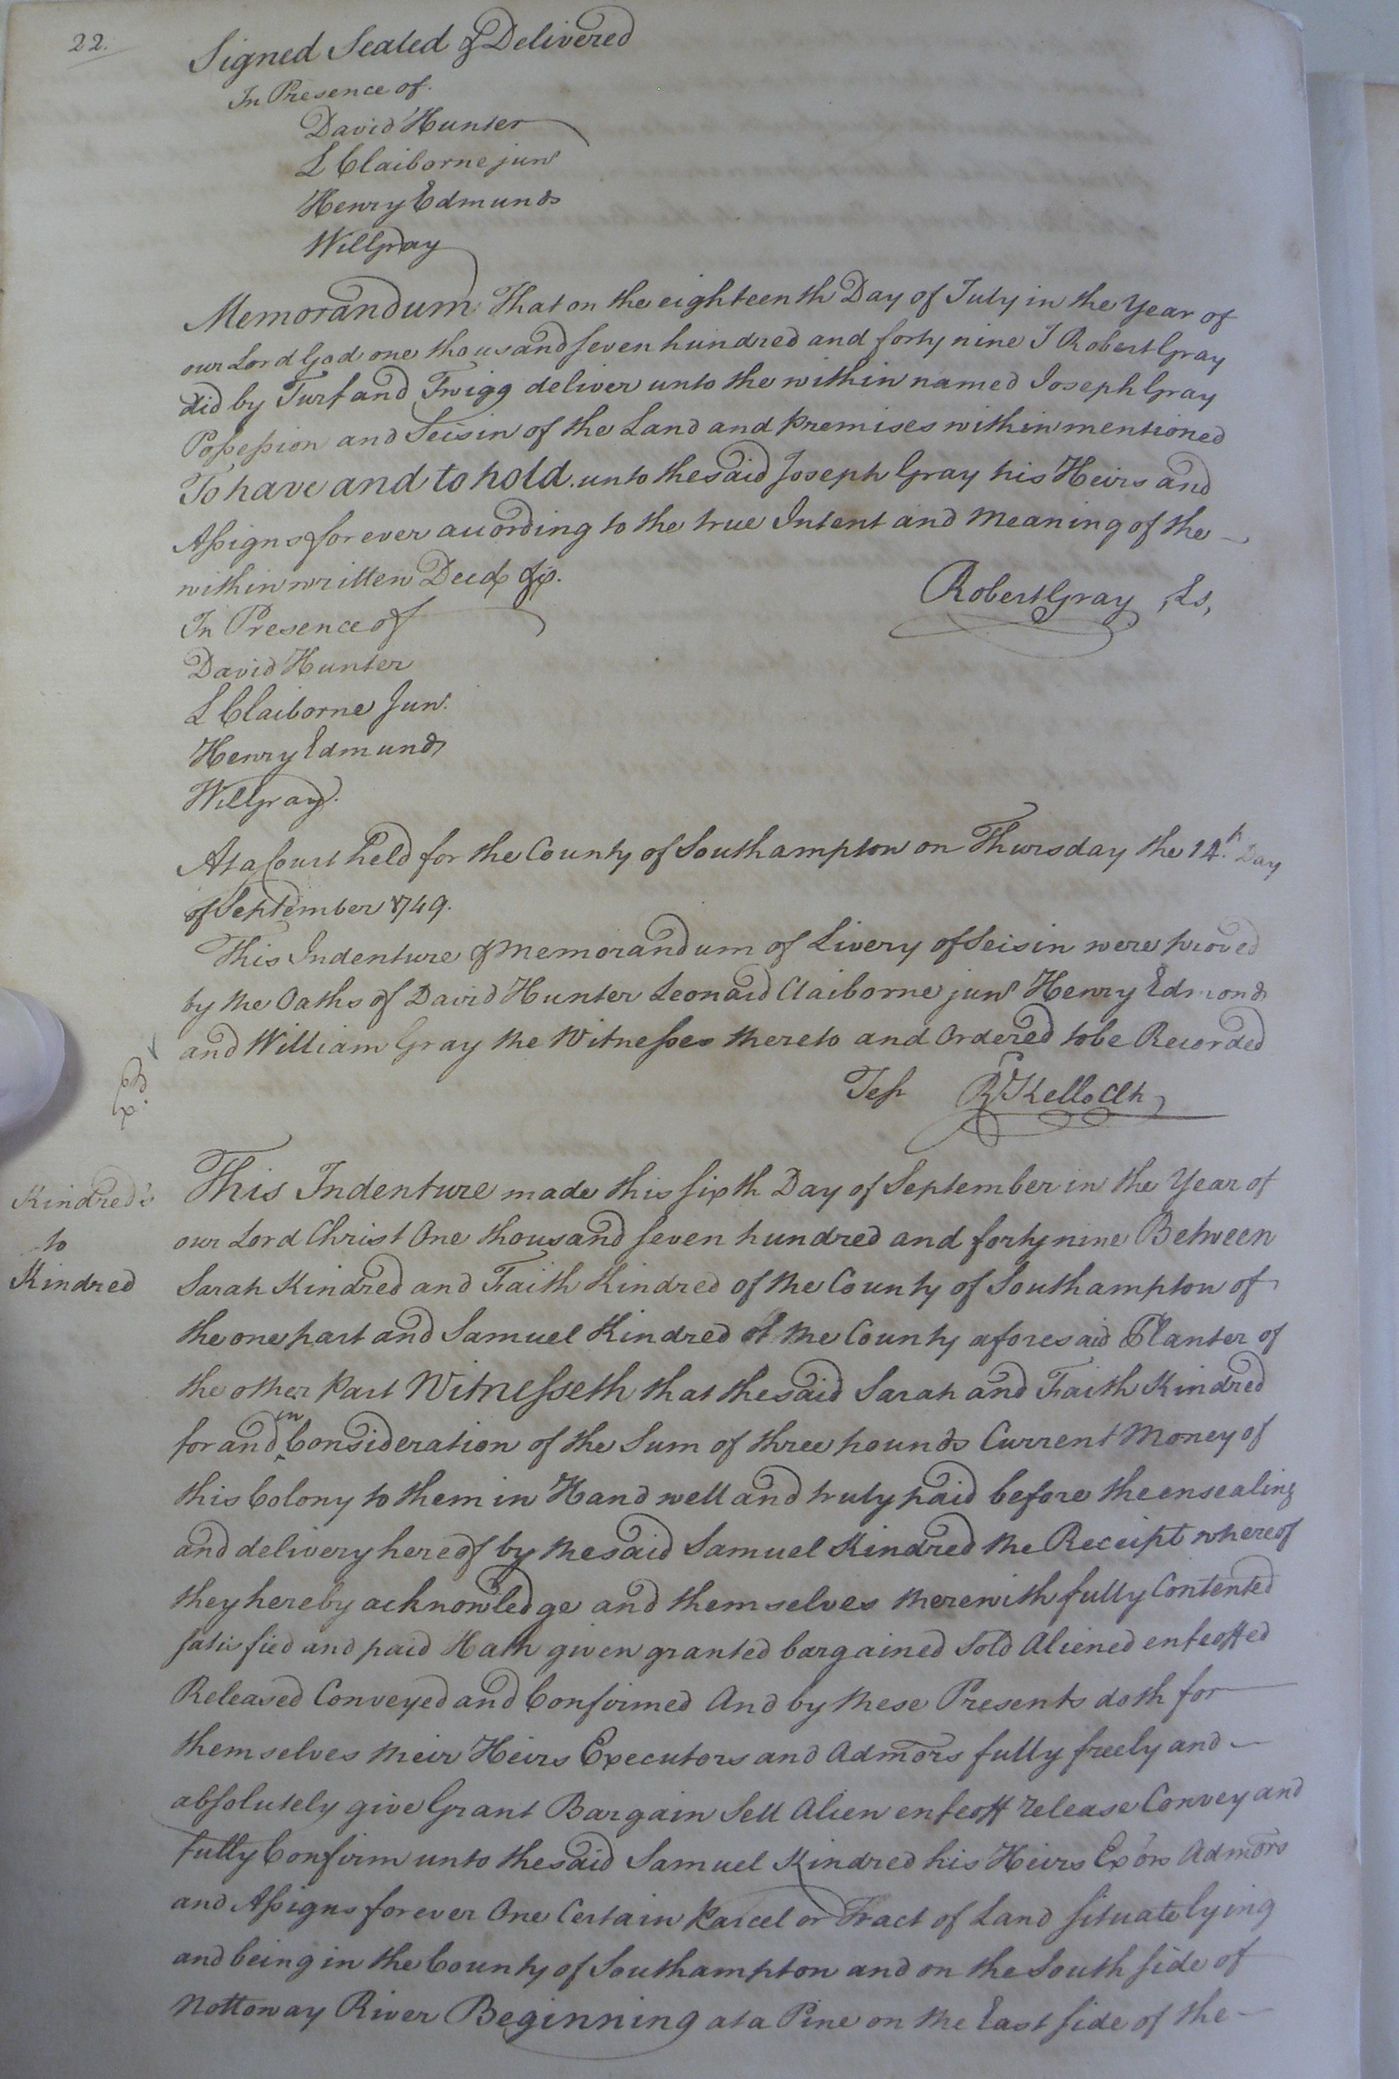 22.
Signed Sealed & Delivered
In Presence of
David Hunter
L Claiborne junr
Henry Edmunds
Will Gray
Memorandum That on the eighteenth Day of July in the Year of
our Lord God one thousand seven hundred and forty nine I Robert Gray
did by Turf and Twigg deliver unto the within named Joseph Gray
Possession and Seisin of the Land and Premises within mentioned
To have and to hold unto the said Joseph Gray his Heirs and
Assigns for ever according to the true Intent and Meaning of the
within written Deed &c.
Robert Gray Ls,
In Presence of
David Hunter
L Claiborne Junr.
Henry Edmunds
Will Gray.
At a Court held for the County of Southampton on Thursday the 14th. Day
of September 1749.
This Indenture & Memorandum of Livery of Seisin were proved
by the Oaths of David Hunter Leonard Claiborne junr Henry Edmonds
and William Gray the Witnesses thereto and Ordered to be Recorded
Test R Kello Clk
Kindred's
to
Kindred
This Indenture made this sixth Day of September in the Year of
our Lord Christ One thousand seven hundred and forty nine Between
Sarah Kindred and Faith Kindred of the County of Southampton of
the one part and Samuel Kindred of the County aforesaid Planter of
the other Part Witnesseth that the said Sarah and Faith Kindred
for and in Consideration of the Sum of three pounds Current Money of
this Colony to them in Hand well and truly paid before the ensealing
and delivery hereof by the said Samuel Kindred the Receipt whereof
they hereby acknowledge and themselves therewith fully Contented
satisfied and paid Hath given granted bargained Sold Aliened enfeoffed
Released Conveyed and Confirmed And by these Presents doth for
themselves their Heirs Executors and Admors fully freely and
absolutely give Grant Bargain Sell Alien enfeoff release Convey and
fully Confirm unto the said Samuel Kindred his Heirs Exors Admors
and Assigns for ever One Certain Parcel or Tract of Land situate lying
and being in the County of Southampton and on the South side of
Nottoway River Beginning at a Pine on the East side of the